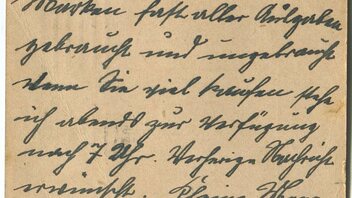 Marken fast aller Ausgaben
gebraucht und ungebraucht
wenn Sie viel kaufen stehe
ich abends zur Verfügung
nach 7 Uhr. Vorherige Nachricht
erwünscht.